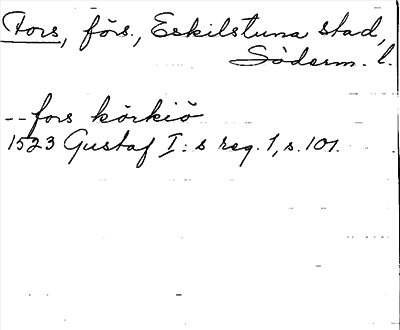 Fors, förs., Eskilstuna stad,
Söderm. l.
-- fors körkiö
1523 Gustaf I:s reg. 1, s. 101.